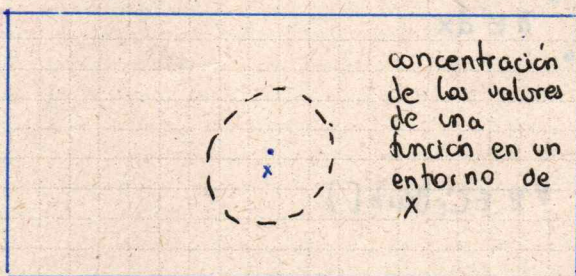 concentración
de los valores
de una
función en un
entorno de
X
x